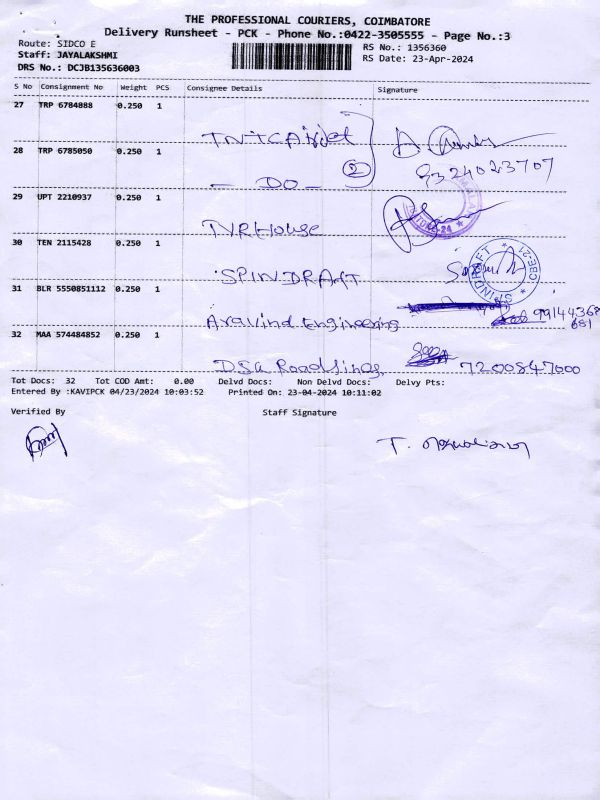 THE PROFESSIONAL COURIERS, COIMBATORE
Delivery Runsheet - PCK - Phone No.:0422-3505555 - Page No.:3
Route: SIDCO E
Staff: JAYALAKSHMI
DRS No.: DCJB135636003
RS No.: 1356360
RS Date: 23-Apr-2024
S No Consignment No Weight PCS Consignee Details Signature
27 TRP 6784888 0.250 1
28 TRP 6785050 0.250 1
- DO - 2
9324023707
29 UPT 2210937 0.250 1
TVR House
30 TEN 2115428 0.250 1
SPINDRAFT
SPINDRAFT * CBE-21 *
31 BLR 5550851112 0.250 1
Aravind Engineering
99144368
681
32 MAA 574484852 0.250 1
7200847000
Tot Docs: 32 Tot COD Amt: 0.00 Delvd Docs: Non Delvd Docs: Delvy Pts:
Entered By :KAVIPCK 04/23/2024 10:03:52 Printed On: 23-04-2024 10:11:02
Verified By Staff Signature